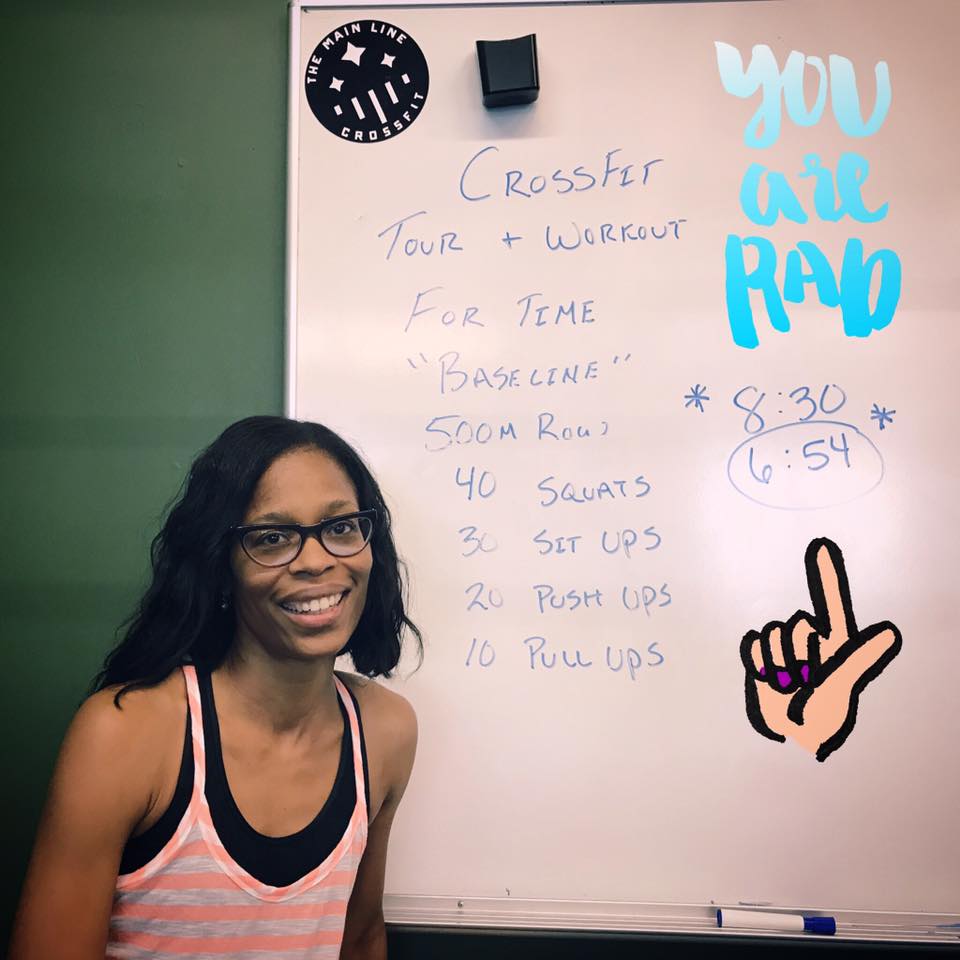 THE MAIN LINE
CROSSFIT
YOU
are
RAD
CROSSFIT
TOUR + WORKOUT
FOR TIME
"BASELINE"
500M ROW
40 SQUATS
30 SIT UPS
20 PUSH UPS
10 PULL UPS
* 8:30 *
6:54